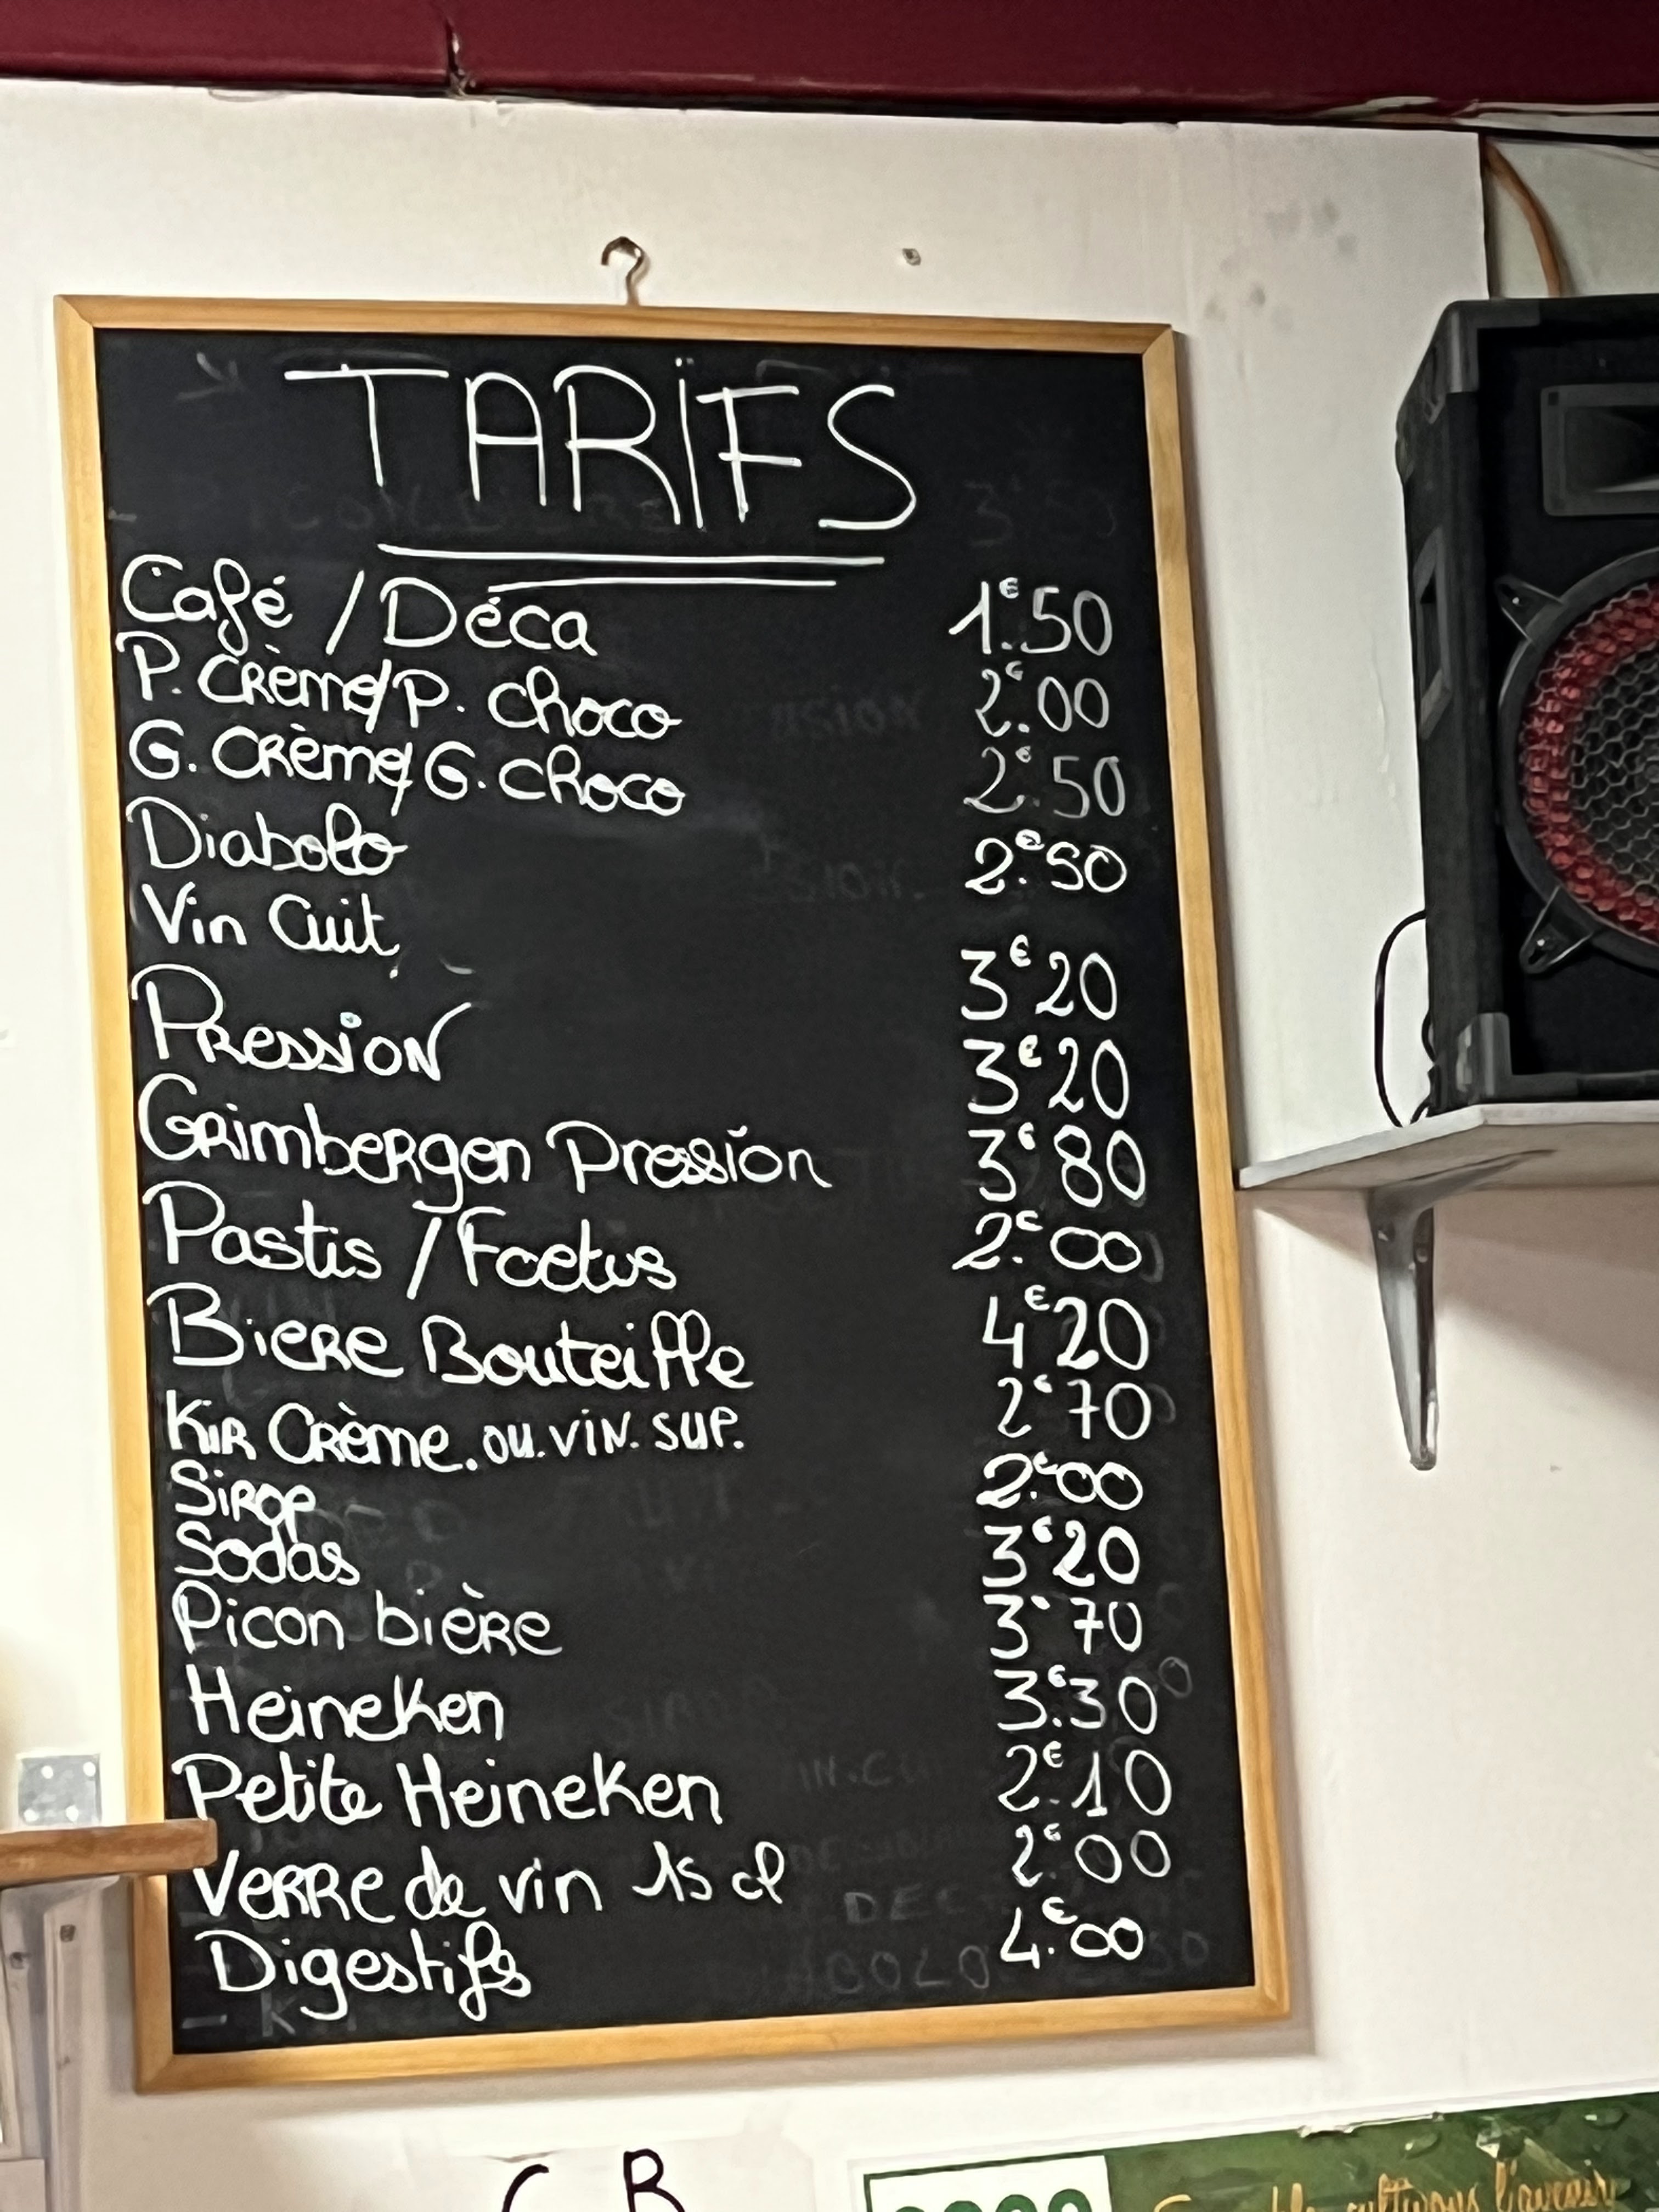 TARIFS
Café / Déca 1€.50
P. Crème/P. choco 2€.00
G. Crème/G. choco 2€.50
Diabolo 2€.50
Vin Cuit 3€20
Pression 3€20
Grimbergen Pression 3€80
Pastis / Foetus 2€.00
Biere Bouteille 4€20
Kir Crème.ou.vin.sup. 2€70
Sirop 2€.00
Sodas 3€20
Picon bière 3€70
Heineken 3€.30
Petite Heineken 2€.10
Verre de vin 15 cl 2€.00
Digestifs 4€.00
CB